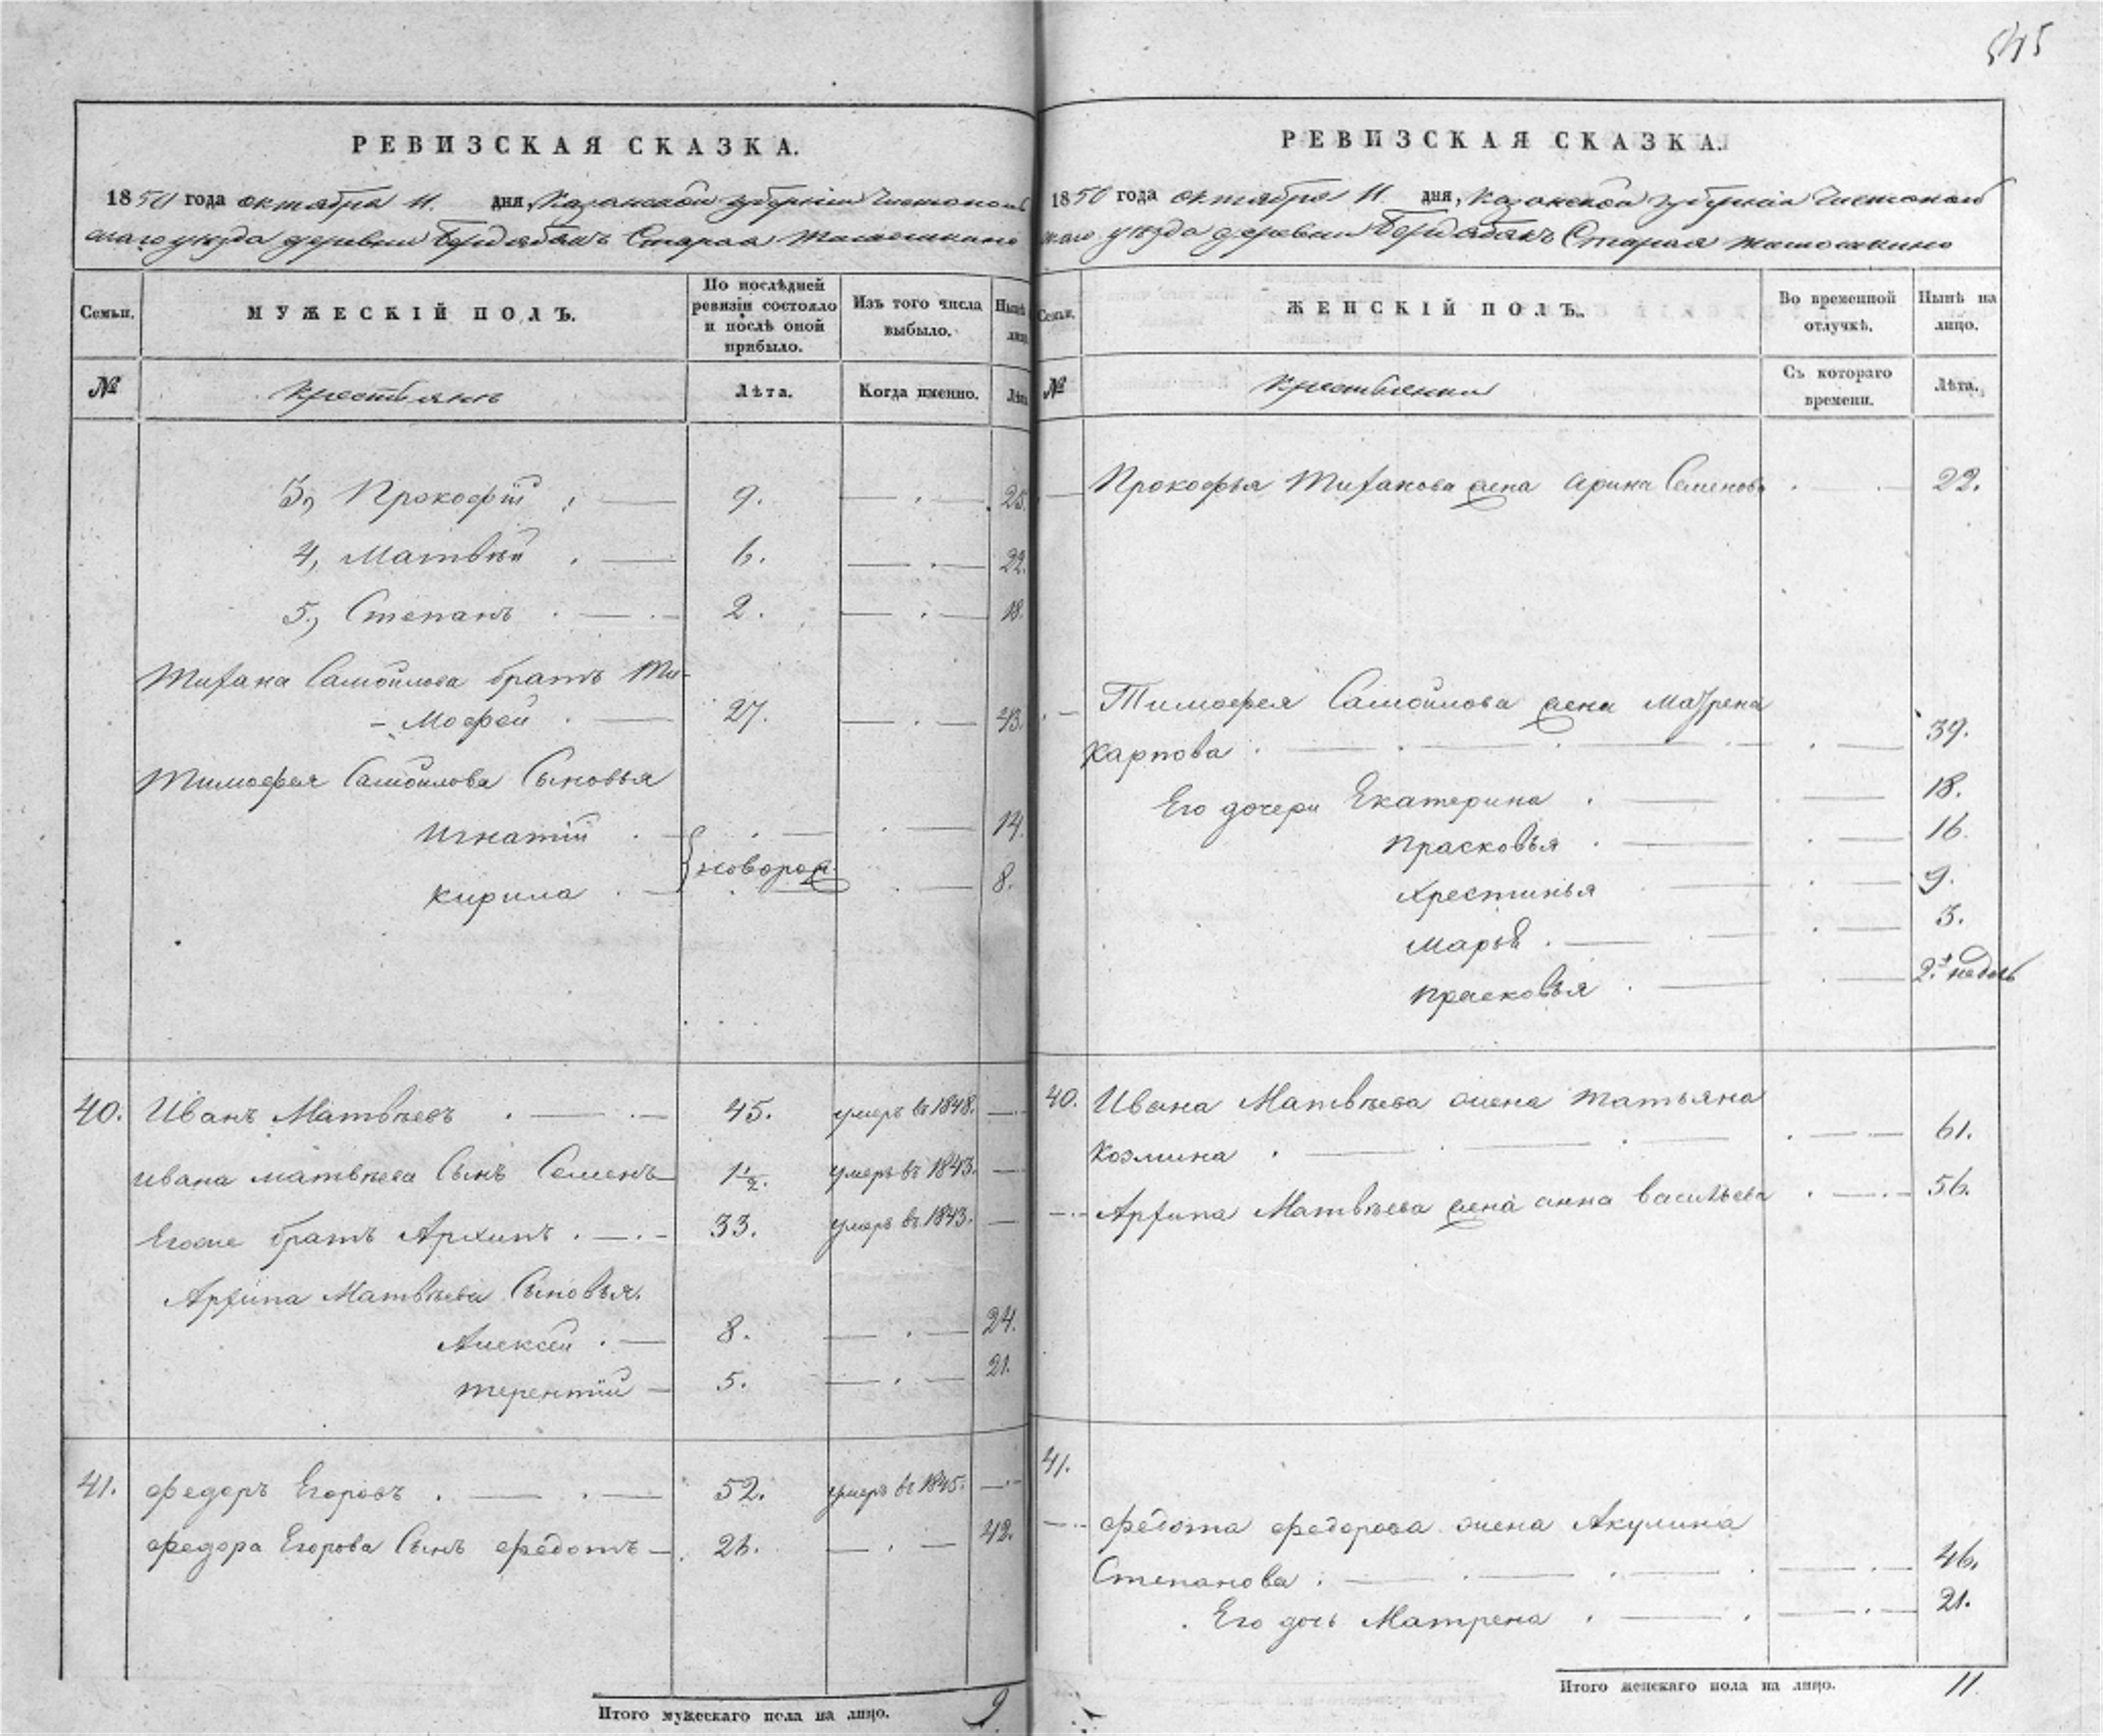 545
РЕВИЗСКАЯ СКАЗКА.
1850 года октября 11. дня, Казанской губернии Чистополь
скаго уезда деревни Старая
Семьи.
МУЖЕСКІЙ ПОЛЪ.
По послѣдней ревизіи состояло и послѣ оной прибыло.
Изъ того числа выбыло.
Нынѣ лицо
№
крестьянъ
Лѣта.
Когда именно.
Лѣта
3, Прокофій 9. 25.
4, Матвѣй 6. 22.
5, Степанъ 2. 18.
Тихана Самойлова братъ Ти-
- Мофей 27. 43.
Тимофея Самойлова Сыновья
Игнатій 14.
новорож
Кирила 8.
40. Иванъ Матвѣевъ 45. умеръ въ 1848.
Ивана Матвѣева Сынъ Семенъ 1 1/2. умеръ въ 1843.
Егоже братъ Архипъ 33. умеръ въ 1843.
Архипа Матвѣева Сыновья.
Алексей 8. 24.
Терентій 5. 21.
41. Федоръ Егоровъ 52. умеръ въ 1845.
Федора Егорова Сынъ Федотъ 26. 42.
Итого мужескаго пола на лицо. 9
РЕВИЗСКАЯ СКАЗКА.
1850 года октября 11 дня, Казанской губерніи Чистополь
скаго уезда деревни Старая
Семьи.
ЖЕНСКІЙ ПОЛЪ.
Во временной отлучкѣ.
Нынѣ на лицо.
№
крестьянки
Съ котораго времени.
Лѣта.
Прокофья Тиханова жена Арина Семенова 22.
Тимофея Самойлова жена Матрена
Карпова 39.
Его дочери Екатерина 18.
Прасковья 16.
Хрестинья 9.
Марья 3.
Прасковья 2. недель
40. Ивана Матвѣева жена Татьяна
Козмина 61.
Архипа Матвѣева жена Анна Васильева 56.
41.
Федота Федорова жена Акулина
Степанова 46.
Его дочь Матрена 21.
Итого женскаго пола на лицо. 11